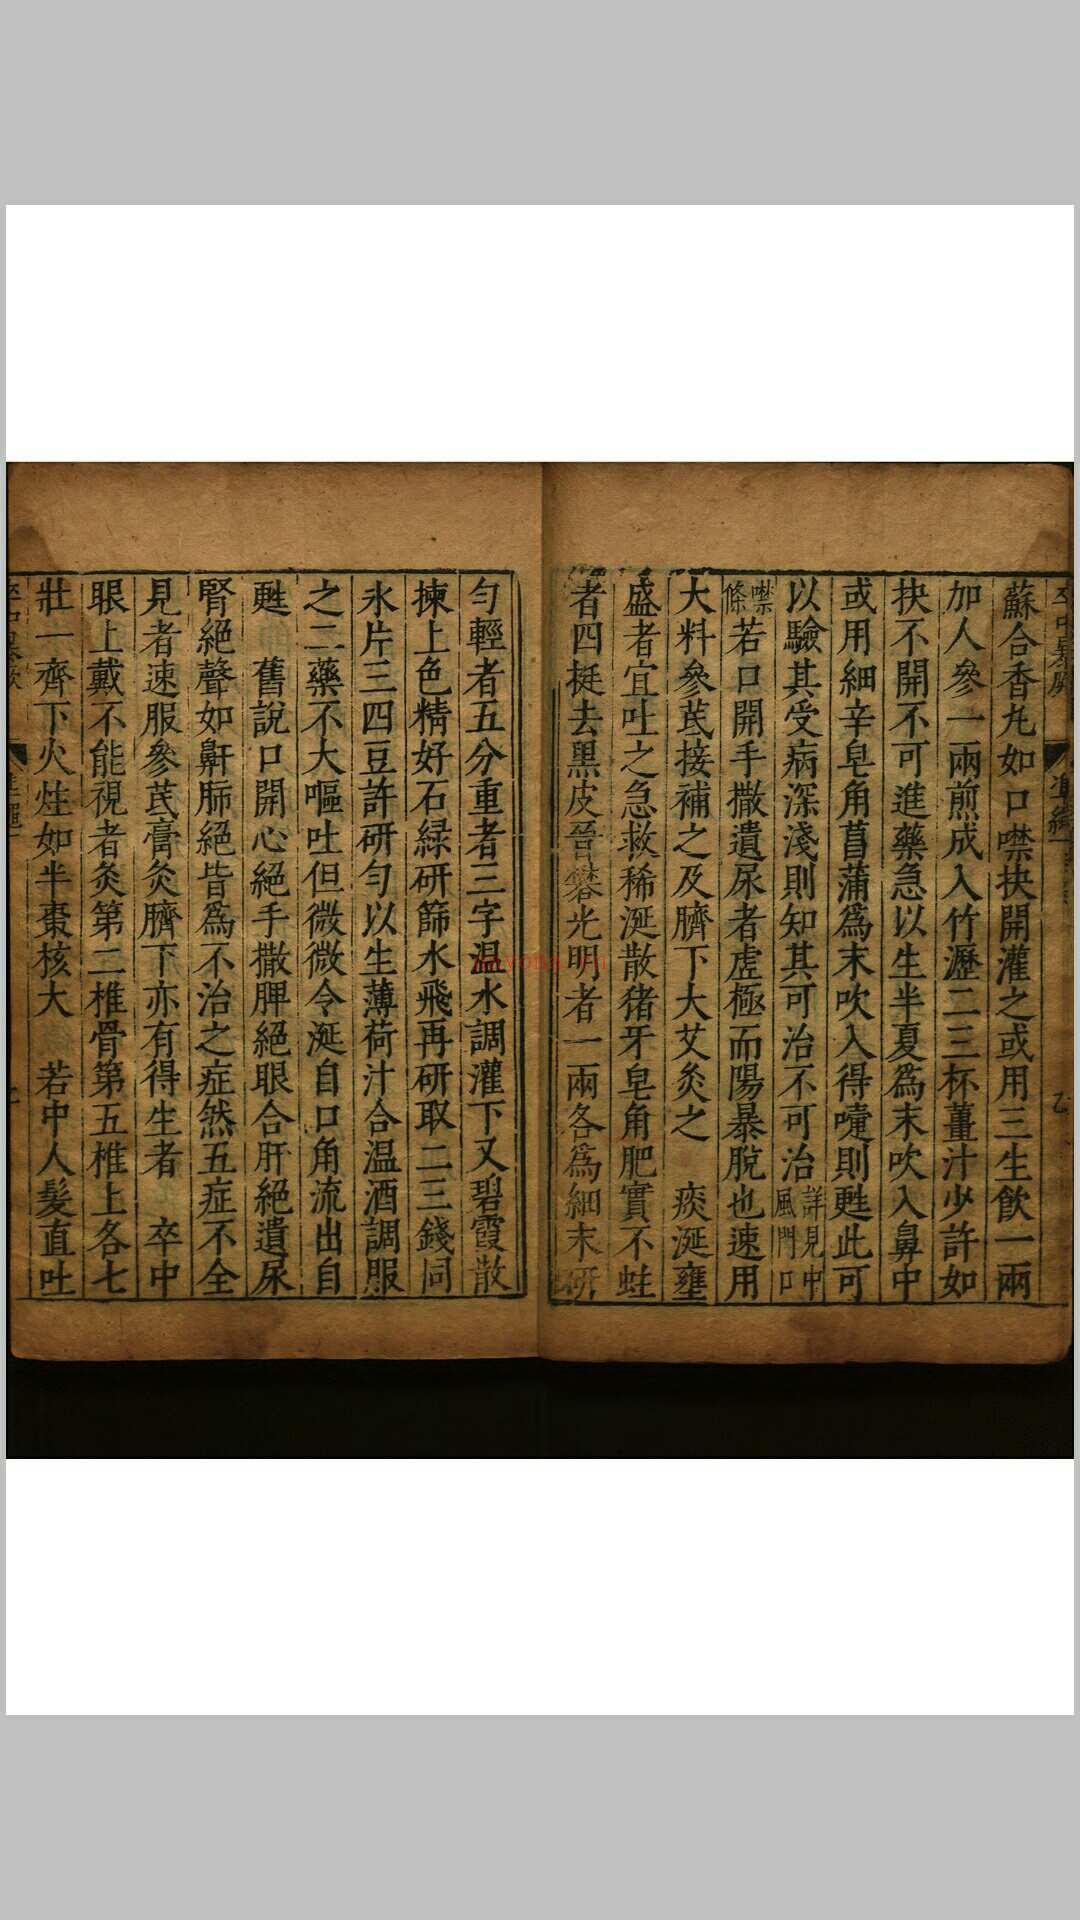 蘇合香丸如口噤抉開灌之或用三生飲一兩
加人參一兩煎成入竹瀝二三杯薑汁少許如
抉不開不可進藥急以生半夏爲末吹入鼻中
或用細辛皂角菖蒲爲末吹入得嚏則甦此可
以驗其受病深淺則知其可治不可治詳見中風門口
噤條若口開手撒遺尿者虛極而陽暴脫也速用
大料參芪接補之及臍下大艾灸之　痰涎壅
盛者宜吐之急救稀涎散猪牙皂角肥實不蛀
者四挺去黑皮晉礬光明者一兩各爲細末研
勻輕者五分重者三字温水調灌下又碧霞散
揀上色精好石緑研篩水飛再研取二三錢同
氷片三四豆許研勻以生薄荷汁合温酒調服
之二藥不大嘔吐但微微令涎自口角流出自
甦　舊說口開心絕手撒脾絕眼合肝絕遺尿
腎絕聲如鼾肺絕皆爲不治之症然五症不全
見者速服參芪膏灸臍下亦有得生者　卒中
眼上戴不能視者灸第二椎骨第五椎上各七
壯一齊下火炷如半棗核大　若中人髮直吐